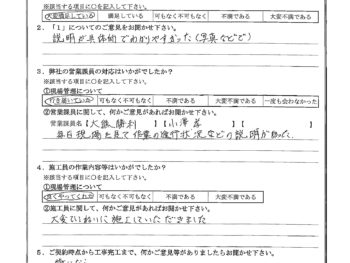 ※該当する項目に○を記入して下さい。
大変満足している 満足している 可もなく不可もなく 不満である 大変不満である
2.「1」についてのご意見をお聞かせ下さい。
説明が具体的でわかりやすかった(写真などで)
3.弊社の営業課員の対応はいかがでしたか?
※該当する項目に○を記入して下さい。
①現場管理について
行き届いていた 可もなく不可もなく 不満である 大変不満である 一度も会わなかった
②営業課員に関して、何かご意見があればお聞かせ下さい。
営業課員名【大 勝利】【小澤 】【 】
毎日現場を見て作業の進行状況などの説明があった。
4.施工員の作業内容等はいかがでしたか?
※該当する項目に○を記入して下さい。
①現場管理について
良くやってくれた 可もなく不可もなく 不満である 大変不満である
②施工員に関して、何かご意見があればお聞かせ下さい。
大変ていねいに施工していただきました
5.ご契約時点から工事完工まで、何かご意見等がありましたらお聞かせ下さい。